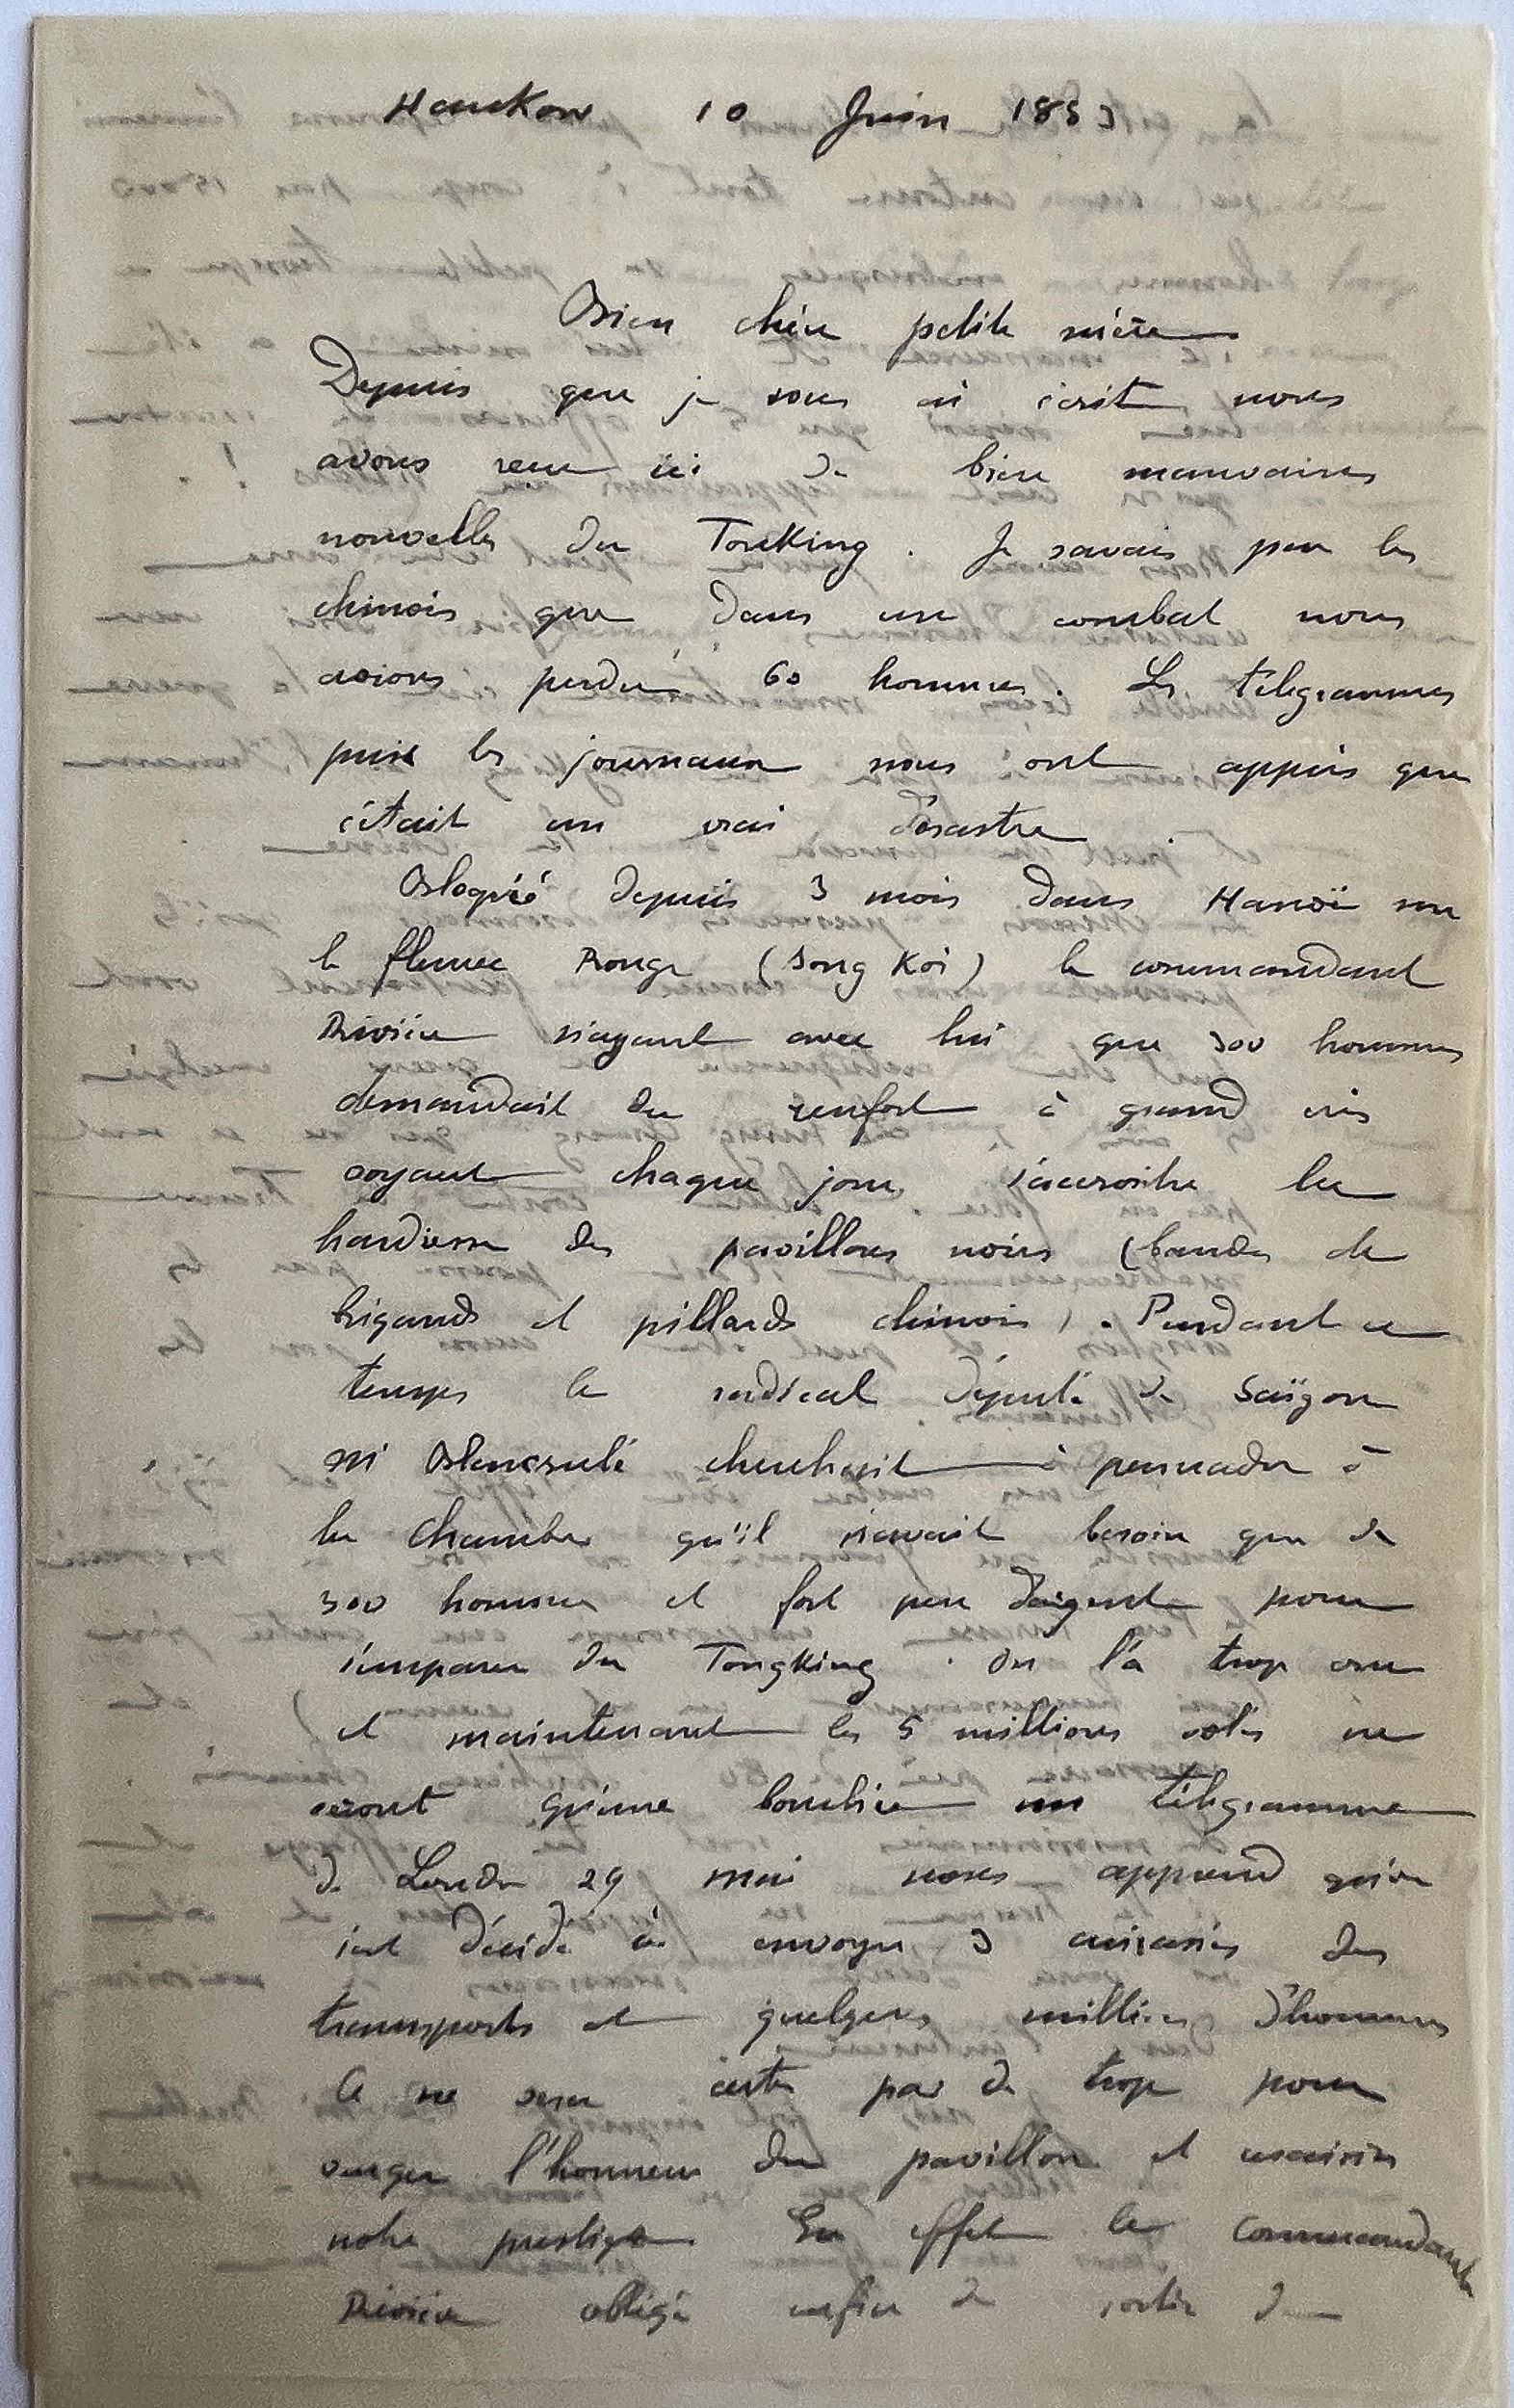 Hankow 10 Juin 1883
Bien chère petite mère
Depuis que je vous ai écrit nous
avons reçu ici de bien mauvaises
nouvelles du Tonking. Je savais par les
chinois que dans un combat nous
avions perdu 60 hommes. Les télégrammes
puis les journaux nous ont appris que
c'était un vrai désastre
Bloqué depuis 3 mois dans Hanoï sur
le fleuve Rouge (Song Koï) le commandant
Rivière n'ayant avec lui que 300 hommes
demandait du renfort à grand cris
voyant chaque jour s'accroître la
hardiesse des pavillons noirs (bandes de
brigands et pillards chinois). Pendant ce
temps le radical député de Saïgon
M Blancsubé cherchait à persuader à
la Chambre qu'il n'avait besoin que de
300 hommes et fort peu d'argent pour
s'emparer du Tongking. On l'a trop cru
et maintenant les 5 millions votés ne
seront qu'une bouchée un télégramme
de Londre 29 mai nous apprend qu'on
s'est décidé à envoyer 3 cuirassés des
transports et quelques milliers d'hommes
Ce ne sera certes pas de trop pour
venger l'honneur du pavillon et
notre prestige. En effet le commandant
Rivière obligé enfin de sortir de